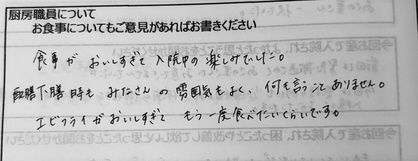 厨房職員について
お食事についてもご意見があればお書きください
食事がおいしすぎて入院中の楽しみでした。
配膳下膳時もみなさんの雰囲気もよく、何も言うことありません。
エビフライがおいしすぎてもう一度食べたいくらいです。